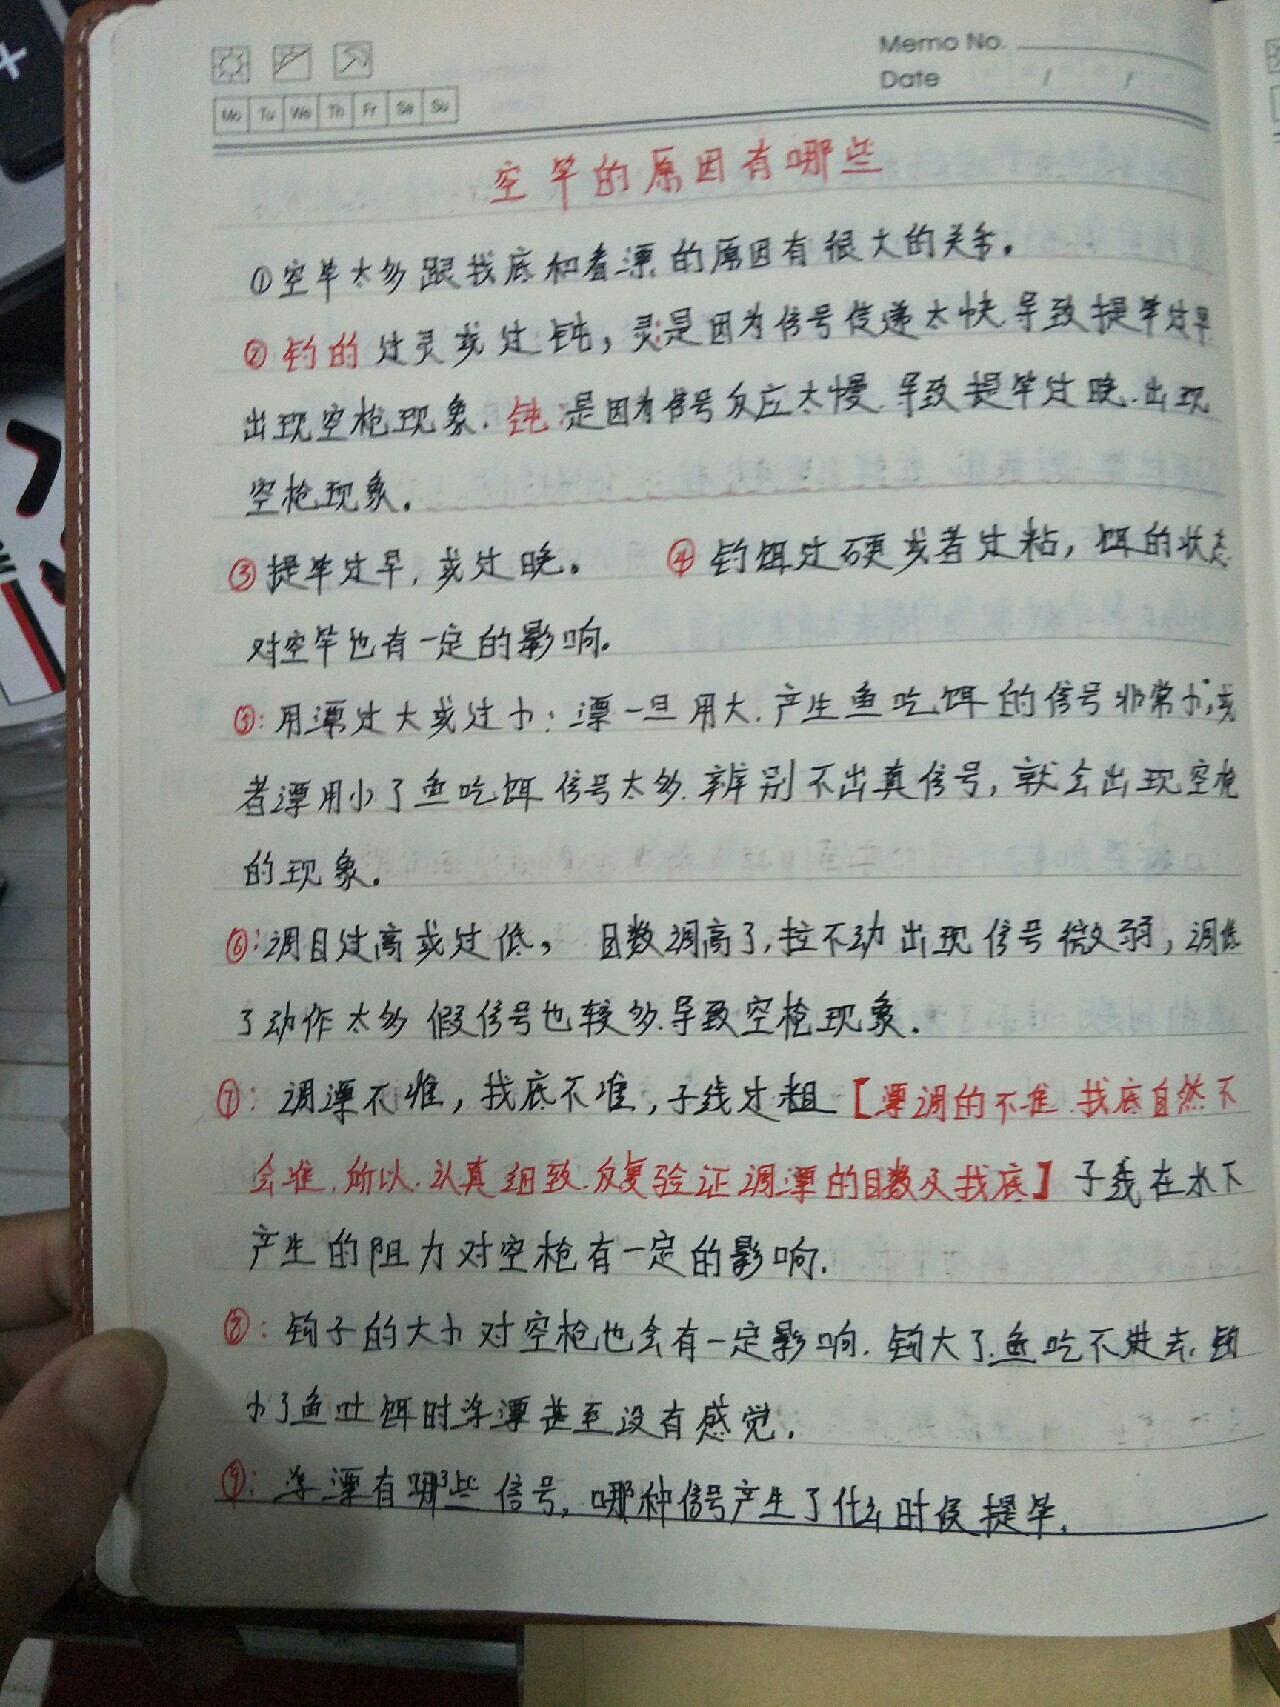 Memo No.
Date / /
Mo Tu We Th Fr Sa Su
空竿的原因有哪些
①空竿太多跟找底和看漂的原因有很大的关系。
② 钓的过灵或过钝，灵:是因为信号传递太快.导致提竿过早
出现空枪现象.钝:是因为信号反应太慢.导致提竿过晚.出现
空枪现象。
③提竿过早,或过晚。 ④ 钓饵过硬或者过粘，饵的状态
对空竿也有一定的影响。
⑤:用漂过大或过小:漂一旦用大.产生鱼吃饵的信号非常小,或
者漂用小了鱼吃饵信号太多.辨别不出真信号,就会出现空枪
的现象。
⑥:调目过高或过低， 目数调高了,拉不动出现信号微弱，调低
了动作太多假信号也较多.导致空枪现象.
⑦: 调漂不准，找底不准,子线过粗【漂调的不准.找底自然不
会准.所以.认真细致.反复验证调漂的目数及找底】子线在水下
产生的阻力对空枪有一定的影响.
⑧: 钩子的大小对空枪也会有一定影响.钩大了.鱼吃不进去.钩
小了鱼吐饵时浮漂甚至没有感觉.
⑨: 浮漂有哪些信号,哪种信号产生了什么时候提竿.